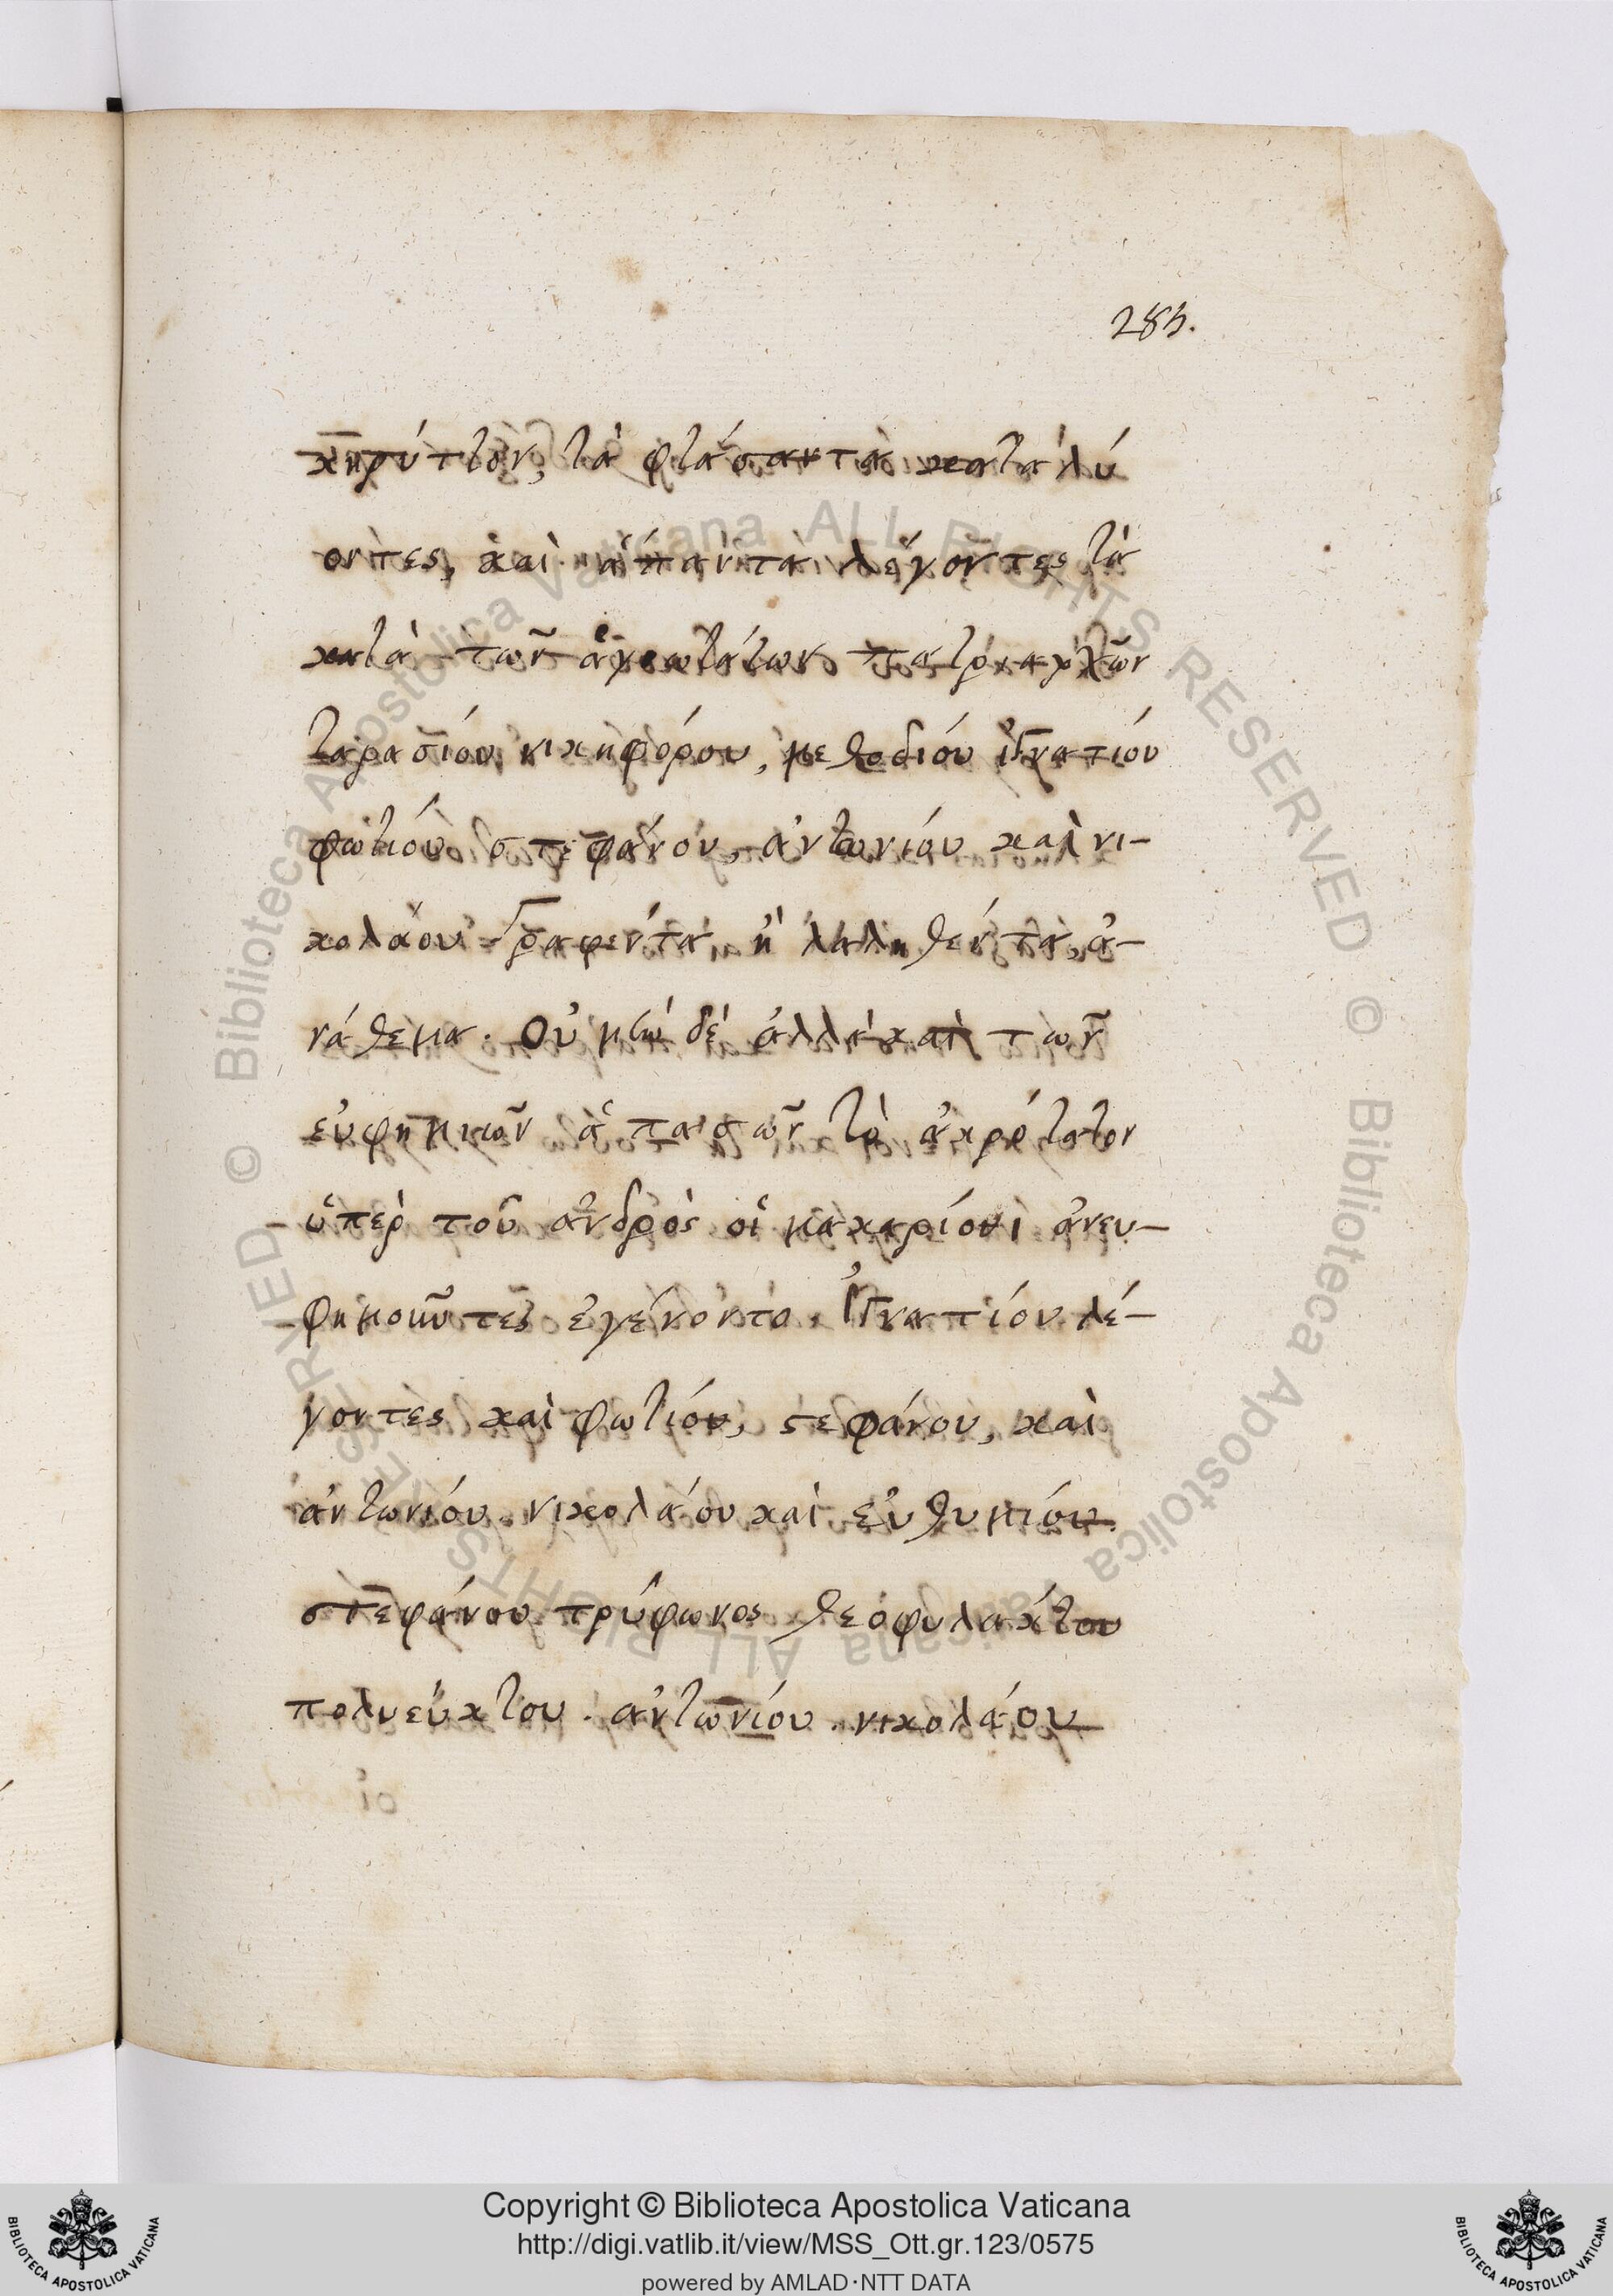 283.
κηρύττον, τὰ φθάσαντα καταλύ
οντες, καὶ ἅπαντα λέγοντες τὰ
κατὰ τῶν ἁγιωτάτων πατριαρχῶν
ταρασίου νικηφόρου, μεθοδίου ἰγνατίου
φωτίου στεφάνου, ἀντωνίου καὶ νι-
κολάου γραφέντα ἢ λαληθέντα, ἀ-
νάθεμα. Οὐ μὴν δὲ ἀλλὰ καὶ τῶν
εὐφημιῶν ἁπασῶν τὸ ἀκρότατον
ὑπὲρ τοῦ ἀνδρὸς οἱ μακάριοι ἀνευ-
φημοῦντες ἐγένοντο. Ἰγνατίου λέ-
γοντες καὶ φωτίου, στεφάνου, καὶ
ἀντωνίου. νικολάου καὶ εὐθυμίου.
στεφάνου τρύφωνος θεοφυλάκτου
πολυεύκτου. ἀντωνίου. νικολάου
Copyright © Biblioteca Apostolica Vaticana
http://digi.vatlib.it/view/MSS_Ott.gr.123/0575
powered by AMLAD·NTT DATA
BIBLIOTECA APOSTOLICA VATICANA
BIBLIOTECA APOSTOLICA VATICANA
© Biblioteca Apostolica Vaticana ALL RIGHTS RESERVED
© Biblioteca Apostolica Vaticana ALL RIGHTS RESERVED